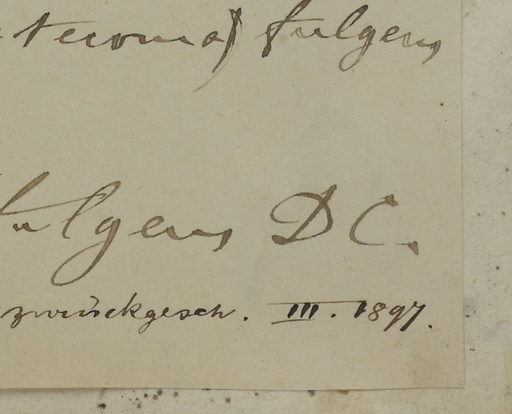 teroma) fulgens
fulgens DC.
zurückgesch. III. 1897.